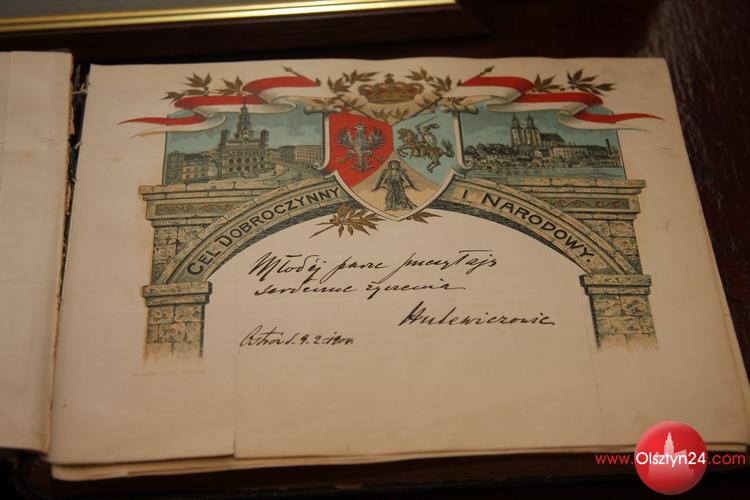 CEL DOBROCZYNNY I NARODOWY.
Młodej parze przesyłają
serdeczne życzenia
Hulewiczowie
Ostrów d. 9. 2. 1908
www.Olsztyn24.com